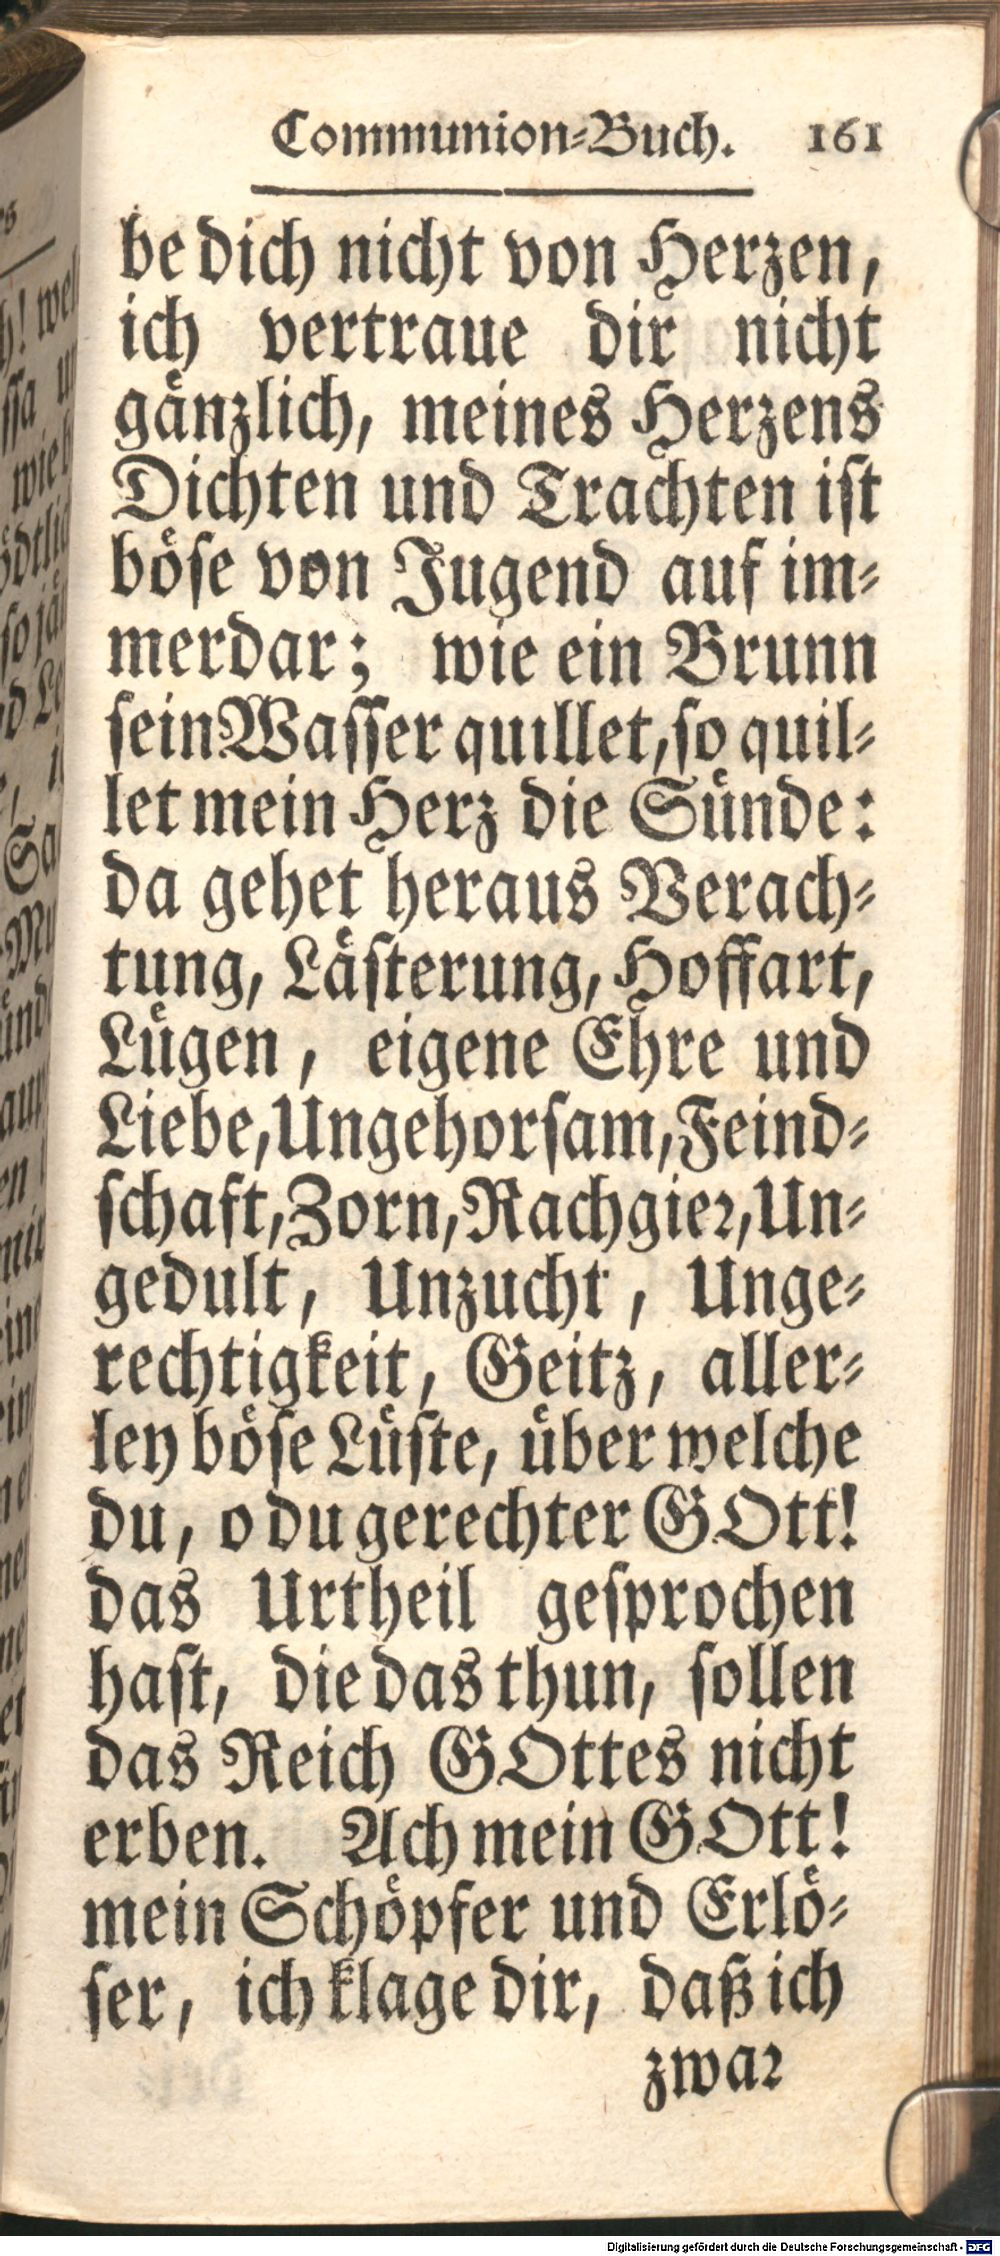 Communion-Buch. 161
be dich nicht von Herzen,
ich vertraue dir nicht
gäntzlich, meines Herzens
Dichten und Trachten ist
böse von Jugend auf im-
merdar; wie ein Brunn
sein Wasser quillet, so quil-
let mein Herz die Sünde:
da gehet heraus Verach-
tung, Lästerung, Hoffart,
Lügen, eigene Ehre und
Liebe, Ungehorsam, Feind-
schaft, Zorn, Rachgier, Un-
gedult, Unzucht, Unge-
rechtigkeit, Geitz, aller-
ley böse Lüste, über welche
du, o du gerechter GOtt!
das Urtheil gesprochen
hast, die das thun, sollen
das Reich GOttes nicht
erben. Ach mein GOtt!
mein Schöpfer und Erlö-
ser, ich klage dir, daß ich
zwar
Digitalisierung gefördert durch die Deutsche Forschungsgemeinschaft - DFG